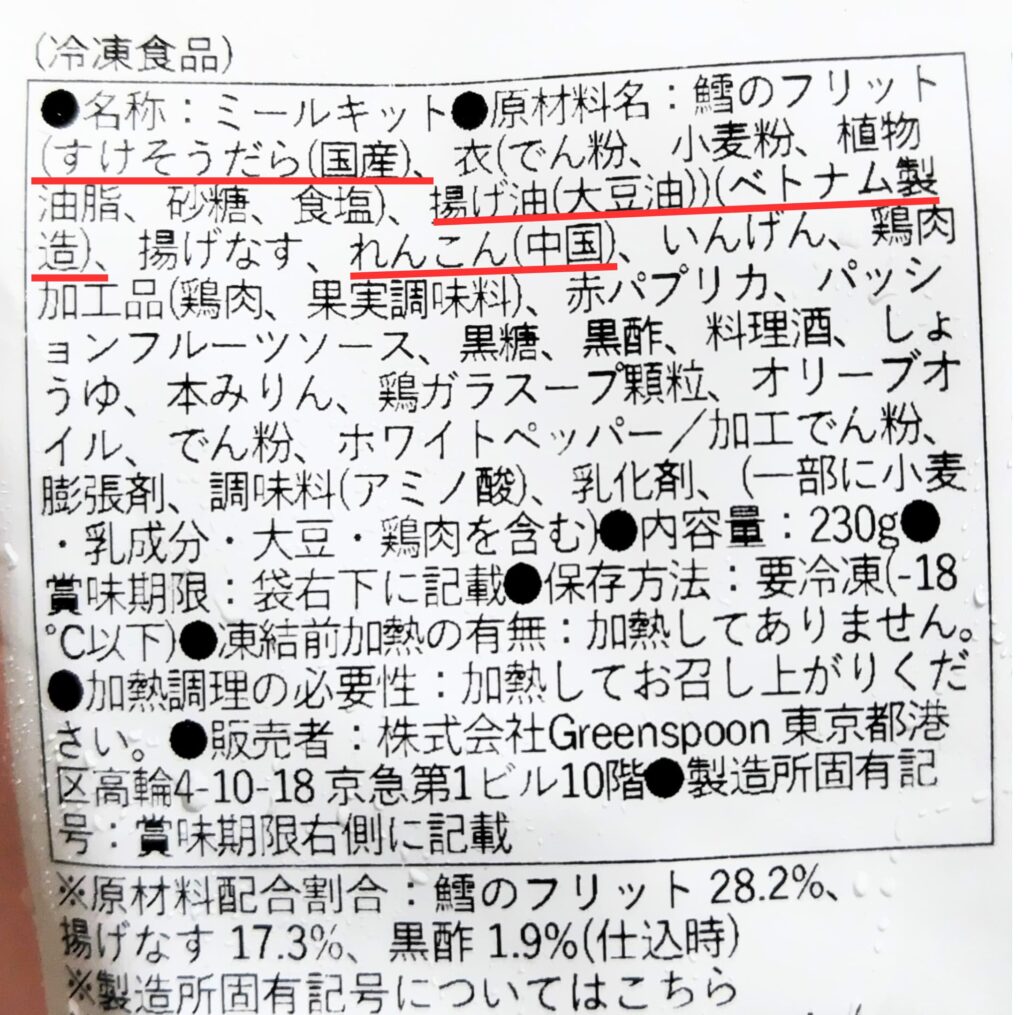 (冷凍食品)
●名称：ミールキット●原材料名：鱈のフリット
(すけそうだら(国産)、衣(でん粉、小麦粉、植物
油脂、砂糖、食塩)、揚げ油(大豆油))(ベトナム製
造)、揚げなす、れんこん(中国)、いんげん、鶏肉
加工品(鶏肉、果実調味料)、赤パプリカ、パッシ
ョンフルーツソース、黒糖、黒酢、料理酒、しょ
うゆ、本みりん、鶏ガラスープ顆粒、オリーブオ
イル、でん粉、ホワイトペッパー／加工でん粉、
膨張剤、調味料(アミノ酸)、乳化剤、(一部に小麦
・乳成分・大豆・鶏肉を含む)●内容量：230g●
賞味期限：袋右下に記載●保存方法：要冷凍(-18
℃以下)●凍結前加熱の有無：加熱してありません。
●加熱調理の必要性：加熱してお召し上がりくだ
さい。●販売者：株式会社Greenspoon 東京都港
区高輪4-10-18 京急第1ビル10階●製造所固有記
号：賞味期限右側に記載
※原材料配合割合：鱈のフリット 28.2%、
揚げなす 17.3%、黒酢 1.9%(仕込時)
※製造所固有記号についてはこちら